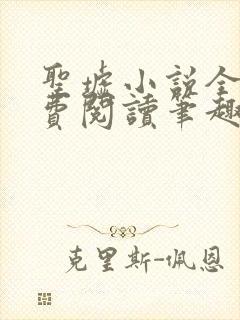 聖墟小說全
費閱讀筆趣
克里斯-佩恩